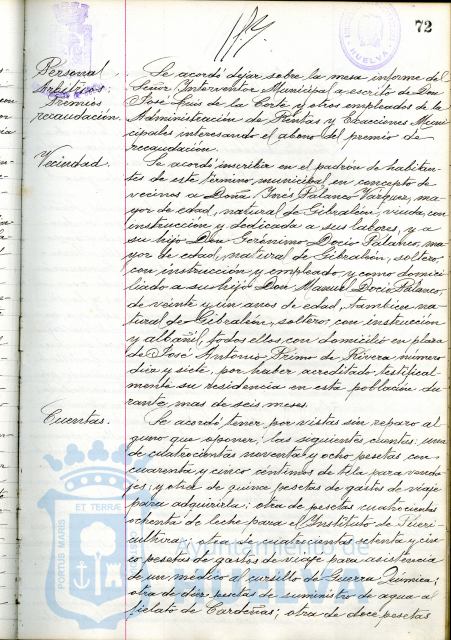 72
HUELVA
Personal
Arbitrios.
Premios
recaudación.
Se acordó dejar sobre la mesa informe del
Señor Interventor Municipal a escrito de Don
José Luis de la Corte y otros empleados de la
Administración de Rentas y Exacciones Muni
cipales interesando el abono del premio de
recaudación.
Vecindad.
Se acordó inscribir en el padrón de habitan-
tes de este término municipal en concepto de
vecinos a Doña Inés Palanco Vázquez, ma
yor de edad, natural de Gibraleón, viuda, con
instrucción y dedicada a sus labores, y a
su hijo Don Gerónimo Docio Palanco, ma
yor de edad, natural de Gibraleón, soltero,
con instrucción y empleado y como domici
liado a su hijo Don Manuel Docio Palanco,
de veinte y un años de edad, tambien na-
tural de Gibraleón, soltero, con instrucción
y albañil, todos ellos, con domicilio en plaza
de José Antonio Primo de Rivera número
diez y siete, por haber acreditado testifical-
mente su residencia en esta población du
rante mas de seis meses.
Cuentas.
Se acordó tener por vistas sin reparo al
guno que oponer, las siguientes cuentas: una
de cuatrocientas noventa y ocho pesetas con
cuarenta y cinco centimos de tela para venda
jes; y otra de quince pesetas de gastos de viaje
para adquirirla; otra de pesetas cuatrocientas
ochenta de leche para el Instituto de Pueri-
cultura; otra de cuatrocientas setenta y cin
co pesetas de gastos de viaje para asistencia
de un médico al cursillo de Guerra Química;
otra de diez pesetas de suministro de agua al
fielato de Cardeñas; otra de doce pesetas
PORTUS MARIS ET TERRAE
Ayuntamiento de